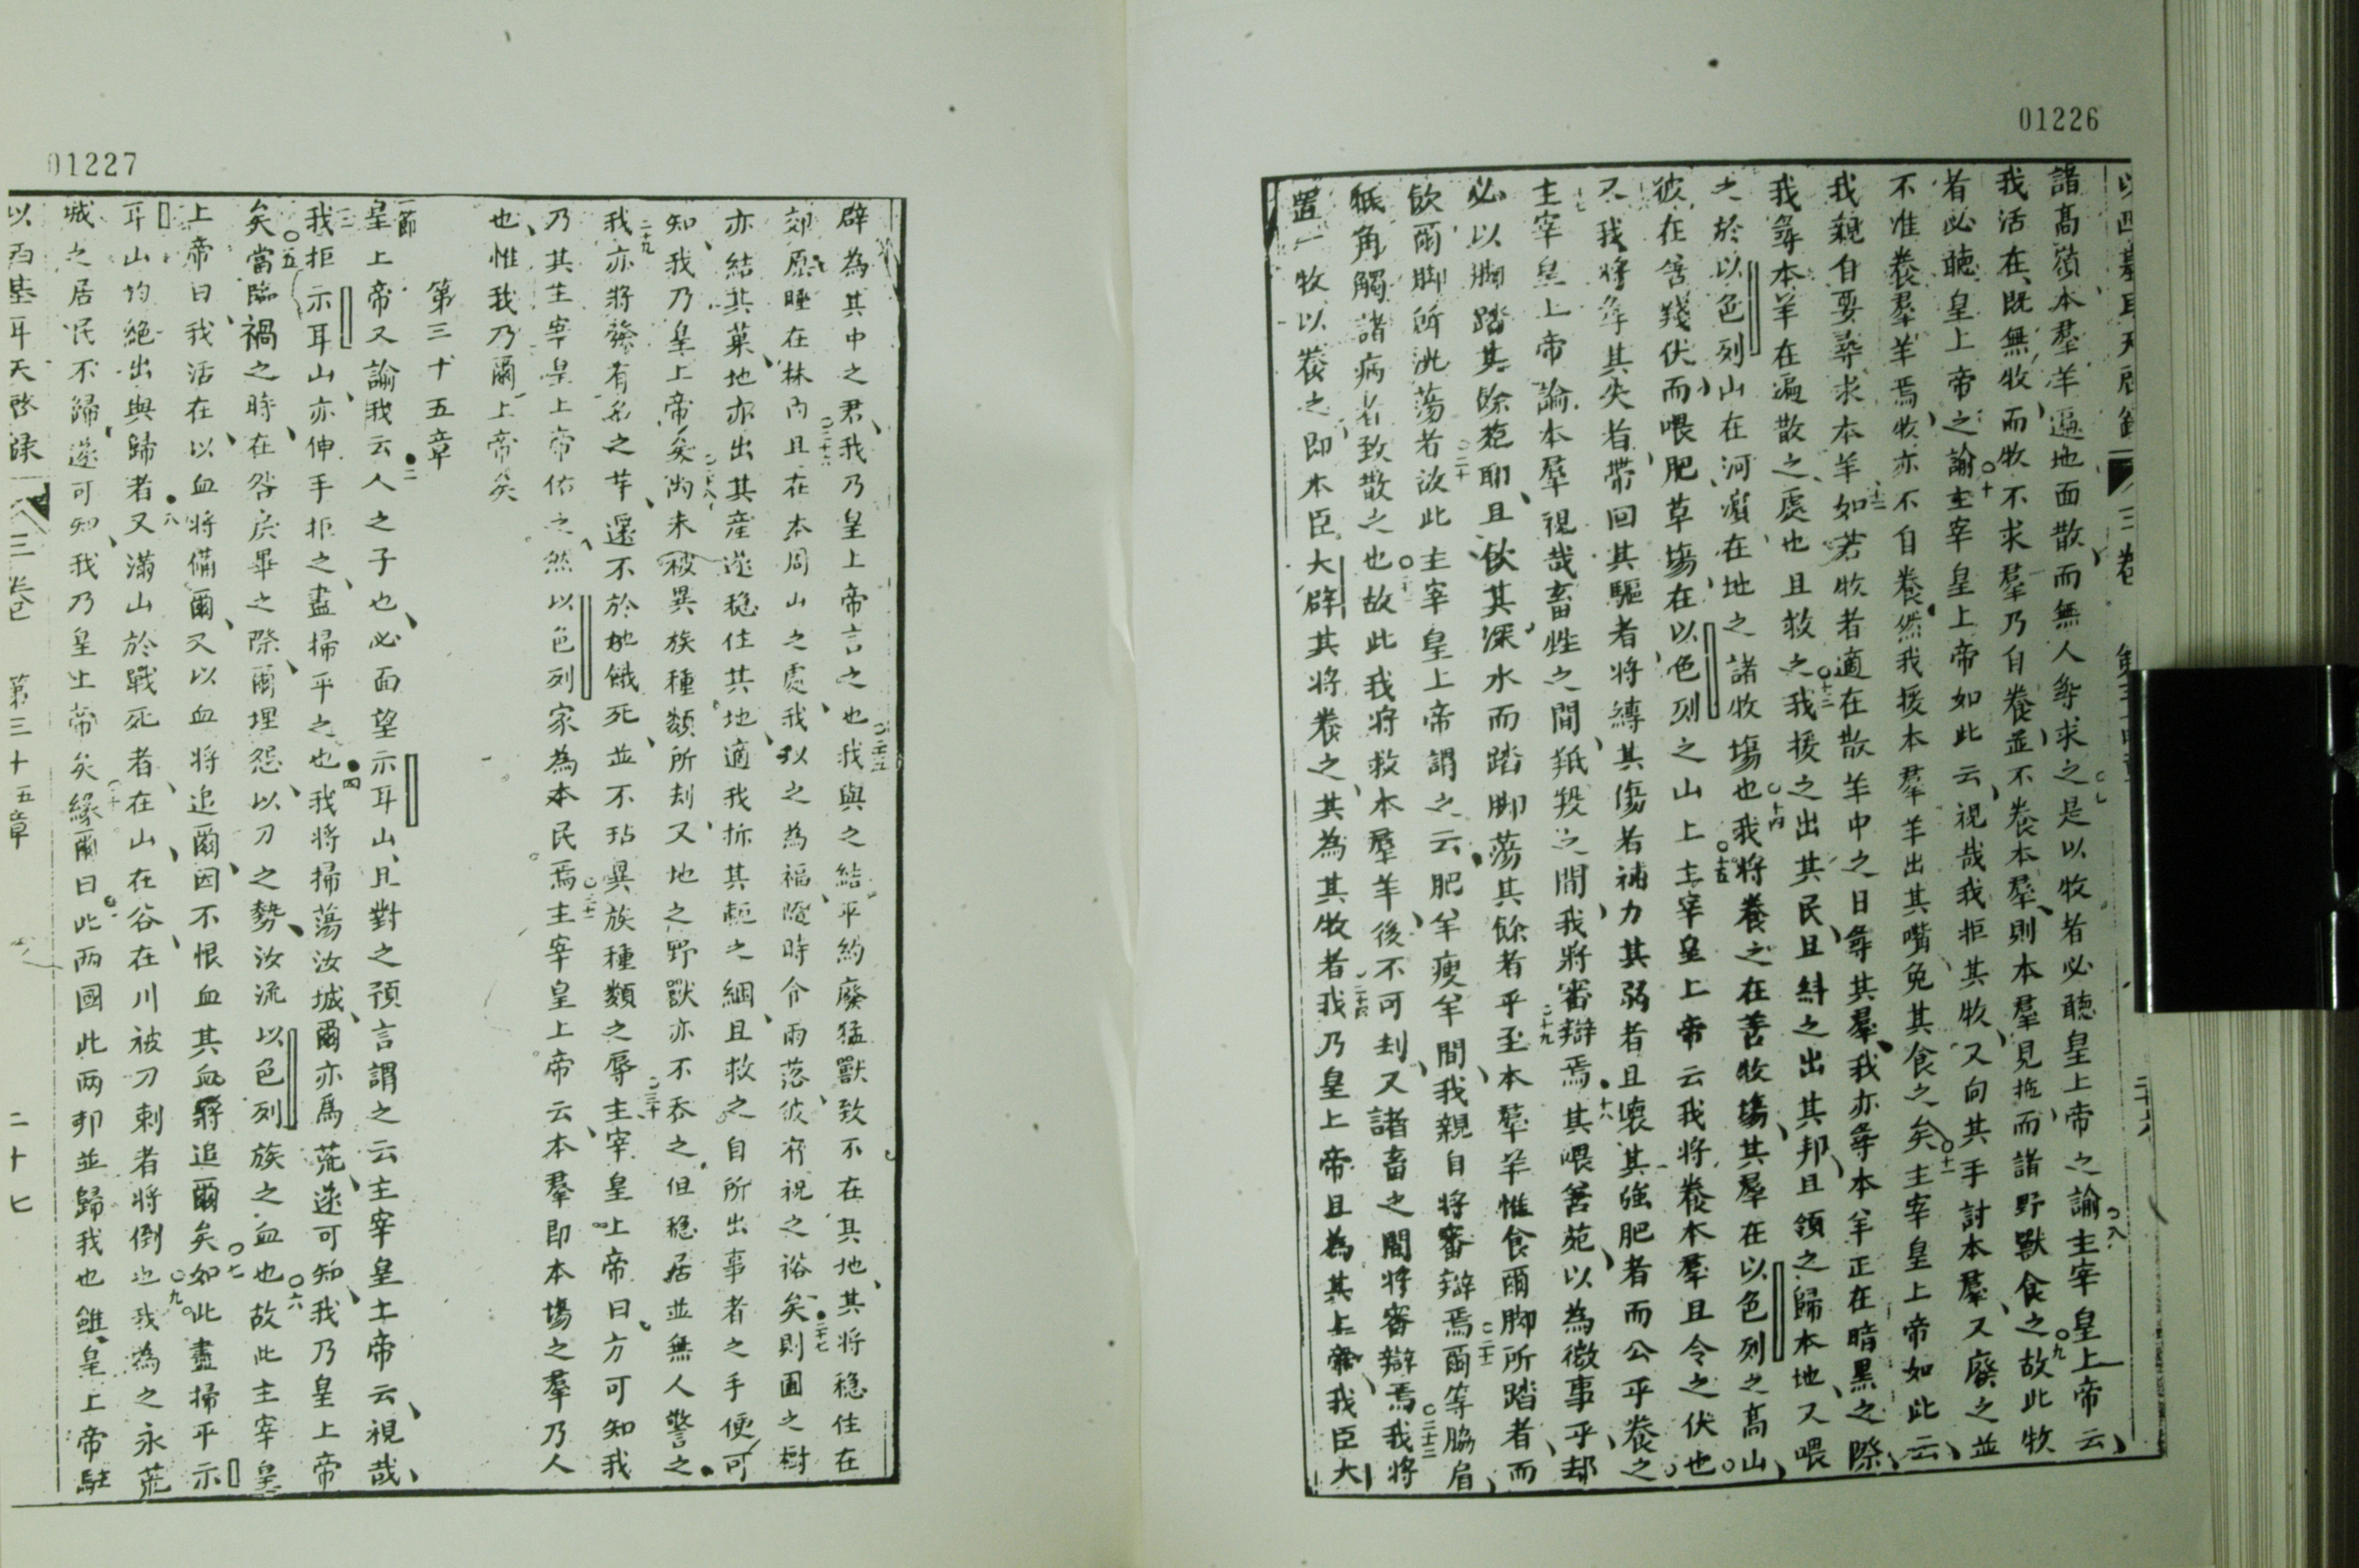 01226
諸高嶺本羣羊遍地面散而無人尋求之是以牧者必聽皇上帝之諭主宰皇上帝云
我活在既無牧而牧不求羣乃自養並不養本羣則本羣見拖而諸野獸食之故此牧
者必聽皇上帝之諭主宰皇上帝如此云視哉我拒其牧又向其手討本羣又廢之並
不准養羣羊焉牧亦不自養然我援本羣羊出其嘴免其食之矣主宰皇上帝如此云
我親自要尋求本羊如若牧者適在散羊中之日尋其羣我亦尋本羊正在暗黑之際
我尋本羊在遍散之處也且救之我援之出其民且糾之出其邦且領之歸本地又喂
之於以色列山在河濱在地之諸牧場也我將養之在善牧場其羣在以色列之高山
彼在善棧伏而喂肥草場在以色列之山上主宰皇上帝云我將養本羣且令之伏也
又我將尋其失者帶回其驅者將縛其傷者補力其弱者且壞其強肥者而公乎養之
主宰皇上帝論本羣視哉畜牲之間羝羖之間我將審辯焉其喂善苑以為微事乎却
必以脚踏其餘苑耶且飲其深水而踏脚蕩其餘者乎至本羣羊惟食爾脚所踏者而
飲爾脚所洸蕩者汝此主宰皇上帝謂之云肥羊瘦羊間我親自將審辯焉爾等脇肩
觝角觸諸病者致散之也故此我將救本羣羊後不可刦又諸畜之間將審辯焉我將
置一牧以養之即本臣大辟其將養之其為其牧者我乃皇上帝且為其上帝我臣大
01227
辟為其中之君我乃皇上帝言之也我與之結平約廢猛獸致不在其地其將穏住在
郊原睡在林內且在本周山之處我以之為福隨時令雨落彼祈祝之裕矣則圃之樹
亦結其菓地亦出其產遂穏住其地適我折其軛之綑且救之自所出事者之手便可
知我乃皇上帝矣尚未被異族種類所刦又地之野獸亦不吞之但穏居並無人警之
我亦將發有名之芽還不於地餓死並不玷異族種類之辱主宰皇上帝曰方可知我
乃其主宰皇上帝佑之然以色列家為本民焉主宰皇上帝云本羣即本場之羣乃人
也惟我乃爾上帝矣
第三十五章
一節皇上帝又諭我云人之子也必面望示耳山且對之預言謂之云主宰皇上帝云視哉
我拒示耳山亦伸手拒之盡掃平之也我將掃蕩汝城爾亦爲荒遂可知我乃皇上帝
矣當臨禍之時在咎戾畢之際爾埋怨以刀之勢汝流以色列族之血也故此主宰皇
上帝曰我活在以血將備爾又以血將追爾因不恨血其血將追爾矣如此盡掃平示
耳山均絶出與歸者又滿山於戰死者在山在谷在川被刀刺者將倒也我為之永荒
城之居民不歸遂可知我乃皇上帝矣緣爾曰此兩國此兩邦並歸我也雖皇上帝駐
以西基耳天啓錄 三卷 第三十五章 二十七